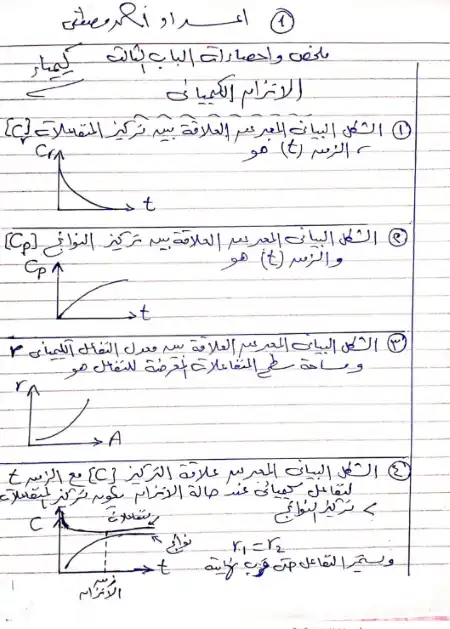 ①
اعداد / أحمد مصطفى
ملخص واختصارات الباب الثالث كيمياء
الاتزان الكيميائى
① الشكل البيانى المعبر عن العلاقة بين تركيز المتفاعلات [Cr]
، الزمن (t) هو
Cr
t
② الشكل البيانى المعبر عن العلاقة بين تركيز النواتج [Cp]
والزمن (t) هو
Cp
t
③ الشكل البيانى المعبر عن العلاقة بين معدل التفاعل الكيميائى r
ومساحة سطح المتفاعلات المعرضة للتفاعل هو
r
A
④ الشكل البيانى المعبر عن علاقة التركيز [C] مع الزمن t
لتفاعل كيميائى عند حالة الاتزان يكون تركيز المتفاعلات
> تركيز النواتج
C
متفاعلات
نواتج
t
زمن
الاتزان
r1 = r2
ويستمر التفاعل حتى قرب نهايته